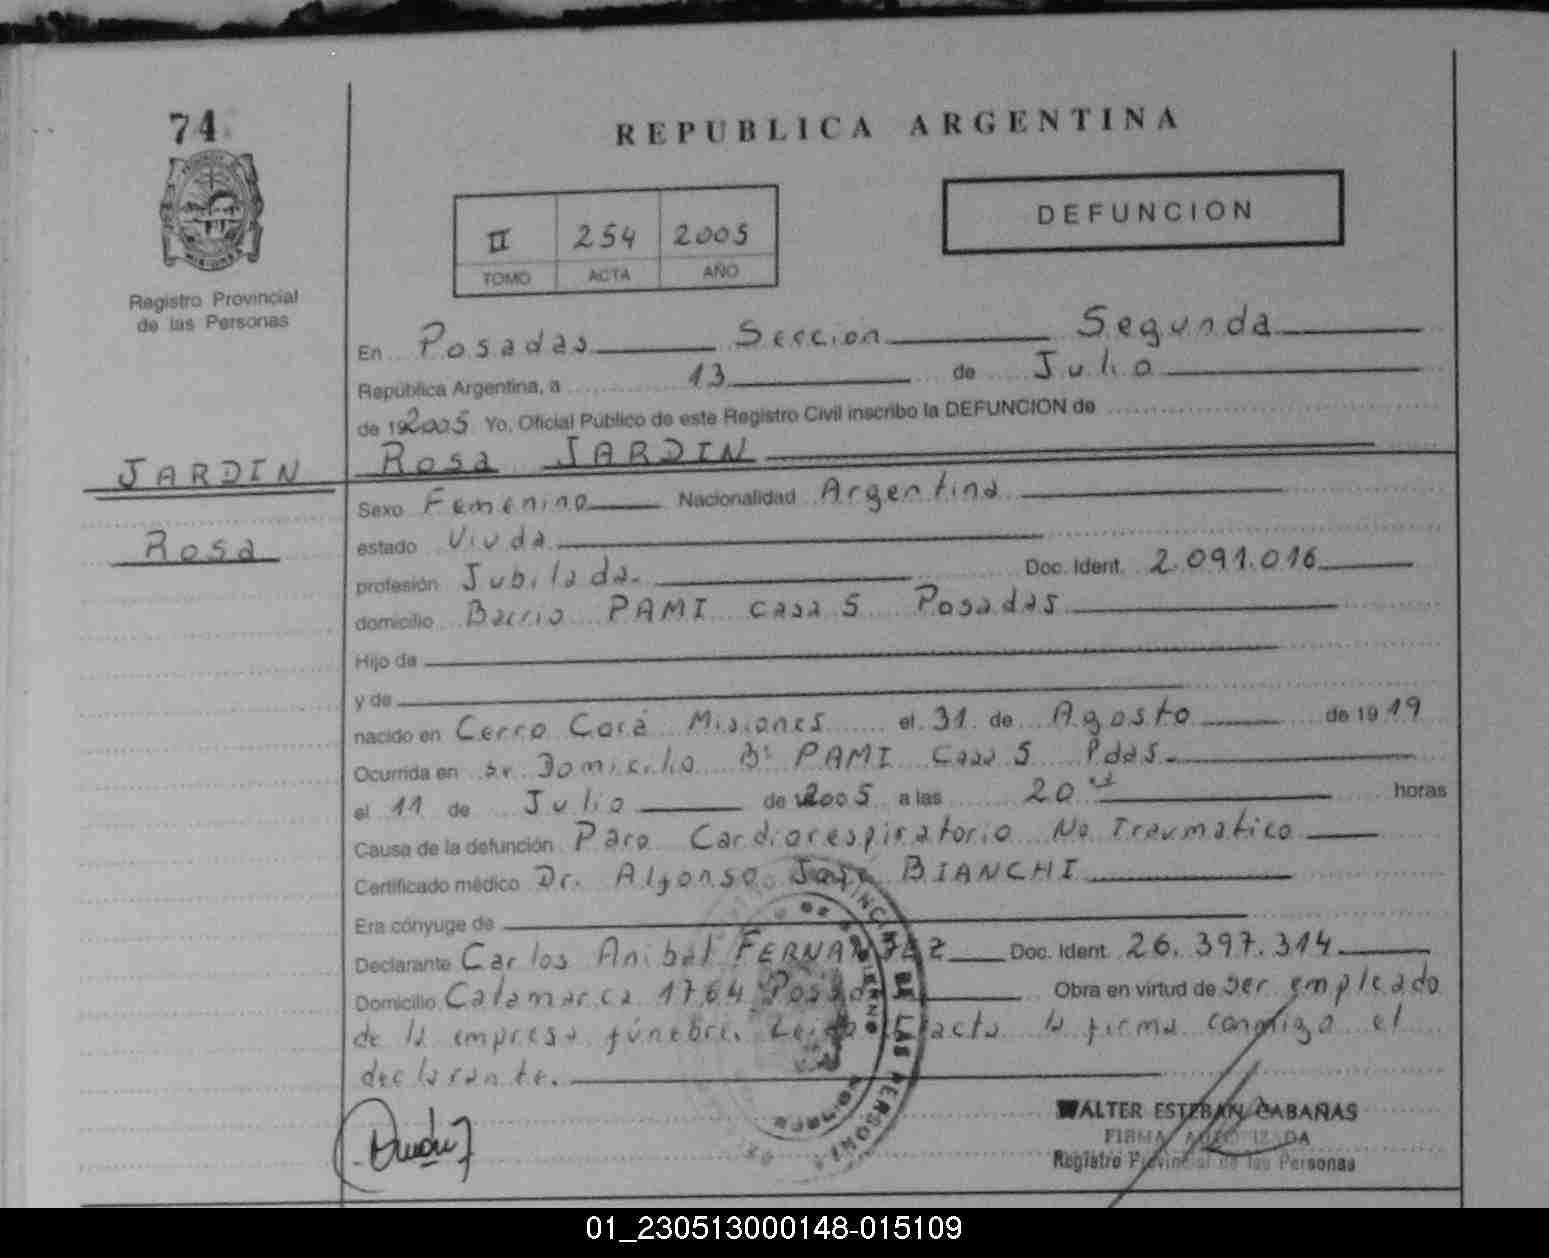 74
REPUBLICA ARGENTINA
II 254 2005
TOMO ACTA AÑO
DEFUNCION
Registro Provincial
de las Personas
En Posadas Sección Segunda
República Argentina, a 13 de Julio
de 19 2005 Yo, Oficial Público de este Registro Civil inscribo la DEFUNCION de
JARDIN
Rosa JARDIN
Rosa
Sexo Femenino Nacionalidad Argentina
estado Viuda
profesión Jubilada. Doc. Ident. 2.091.016
domicilio Barrio PAMI casa 5 Posadas
Hijo de
y de
nacido en Cerro Corá Misiones el 31 de Agosto de 19 19
Ocurrida en su Domicilio Bº PAMI Casa 5 Pdas.
el 11 de Julio de 2005 a las 20 horas
Causa de la defunción Paro Cardiorespiratorio No Traumatico
Certificado médico Dr. Alfonso José BIANCHI
Era cónyuge de
Declarante Carlos Anibal FERNANDEZ Doc. Ident. 26.397.314
Domicilio Catamarca 1764 Posadas Obra en virtud de ser empleado
de la empresa fúnebre. Leida el acta la firma conmigo el
declarante.
DE LAS PERSONAS
WALTER ESTEBAN CABAÑAS
FIRMA AUTORIZADA
Registro Provincial de las Personas
01_230513000148-015109